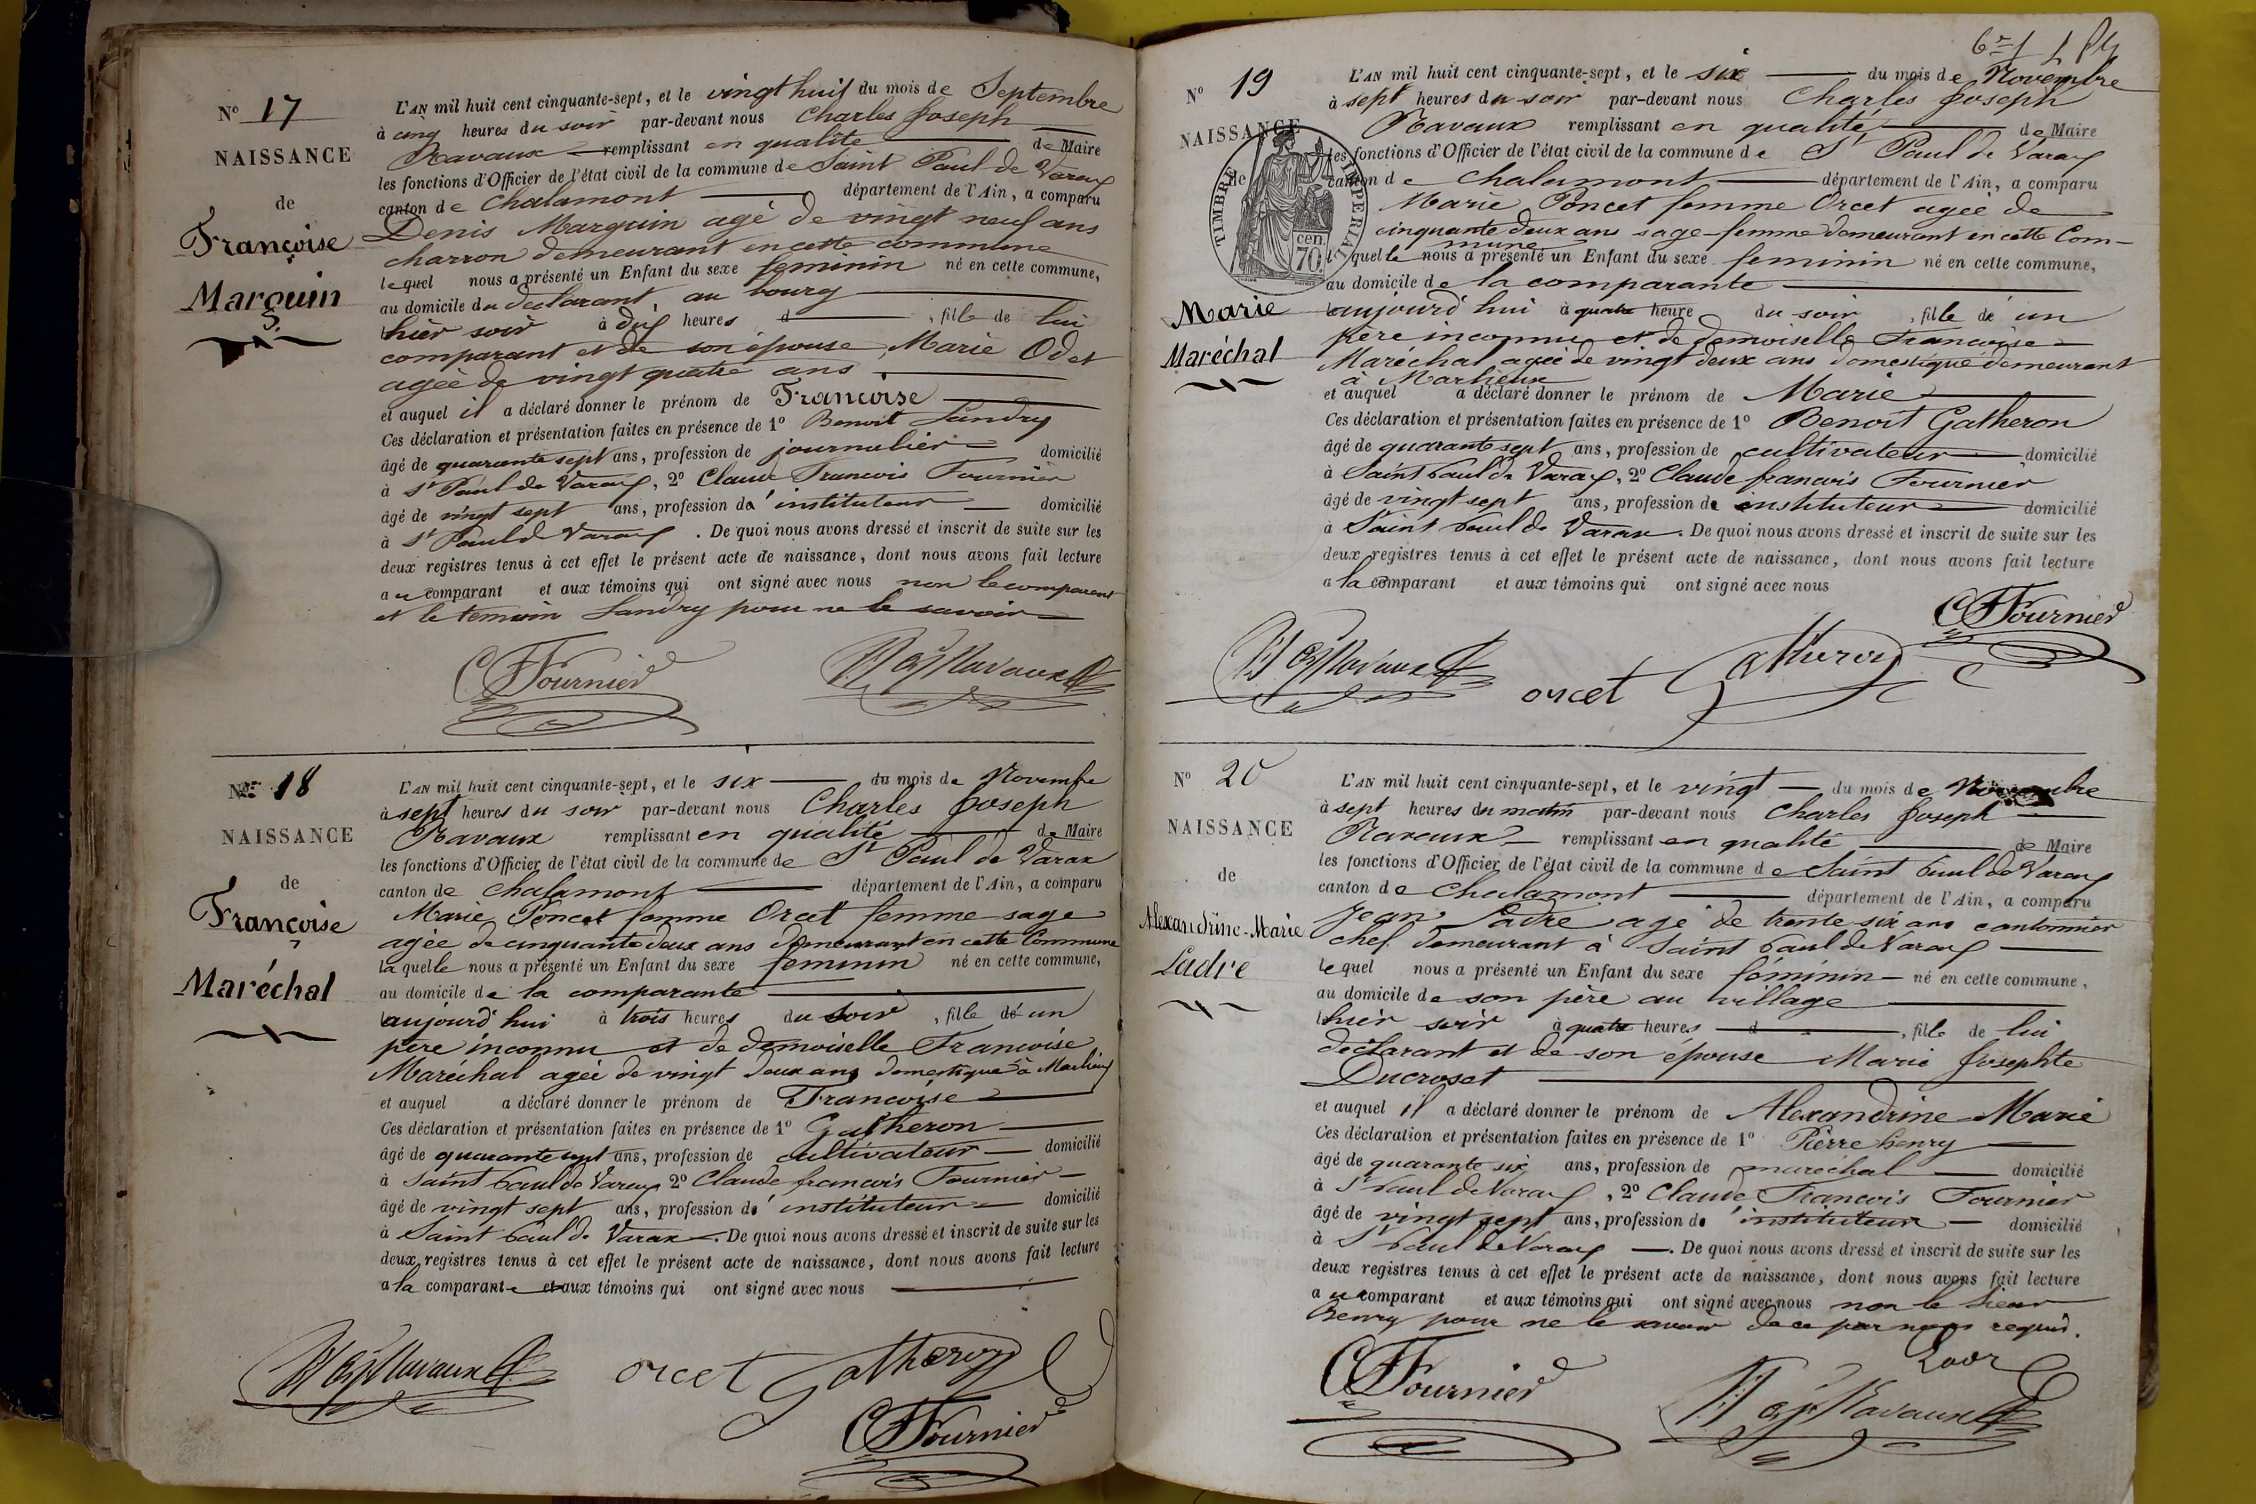 N° 17
NAISSANCE
de
Françoise
Marguin
L'AN mil huit cent cinquante-sept, et le vingt huit du mois de Septembre
à cinq heures du soir par-devant nous Charles Joseph
Ravaux remplissant en qualité de Maire
les fonctions d'Officier de l'état civil de la commune de Saint Paul de Varax
canton de Chalamont département de l'Ain, a comparu
Denis Marguin agé de vingt neuf ans
charron demeurant en cette commune
lequel nous a présenté un Enfant du sexe feminin né en cette commune,
au domicile du declarant, au bourg
hier soir à dix heures d , fille de lui
comparant et de son épouse Marie Odet
agée de vingt quatre ans
et auquel il a déclaré donner le prénom de Francoise
Ces déclaration et présentation faites en présence de 1° Benoit Landry
âgé de quarante sept ans, profession de journalier domicilié
à St Paul de Varax, 2° Claude Francois Fournier
âgé de vingt sept ans, profession d' instituteur domicilié
à St Paul de Varax. De quoi nous avons dressé et inscrit de suite sur les
deux registres tenus à cet effet le présent acte de naissance, dont nous avons fait lecture
au comparant et aux témoins qui ont signé avec nous non le comparant
et le temoin Landry pour ne le savoir
CF Fournier Ravaux
N° 18
NAISSANCE
de
Françoise
Maréchal
L'AN mil huit cent cinquante-sept, et le six du mois de Novembre
à sept heures du soir par-devant nous Charles Joseph
Ravaux remplissant en qualité de Maire
les fonctions d'Officier de l'état civil de la commune de St Paul de Varax
canton de Chalamont département de l'Ain, a comparu
Marie Poncet femme Orcet femme sage
agée de cinquante deux ans demeurant en cette Commune
laquelle nous a présenté un Enfant du sexe feminin né en cette commune,
au domicile de la comparante
aujourd'hui à trois heures du soir, fille de un
père inconnu et de demoiselle Francoise
Maréchal agée de vingt deux ans domestique à Marlieux
et auquel a déclaré donner le prénom de Francoise
Ces déclaration et présentation faites en présence de 1° Gatheron
âgé de quarante sept ans, profession de cultivateur domicilié
à Saint Paul de Varax 2° Claude francois Fournier
âgé de vingt sept ans, profession d' instituteur domicilié
à Saint Paul de Varax. De quoi nous avons dressé et inscrit de suite sur les
deux registres tenus à cet effet le présent acte de naissance, dont nous avons fait lecture
a la comparante et aux témoins qui ont signé avec nous
Ravaux orcet Gatheron
CF Fournier
N° 19
NAISSANCE
de
TIMBRE IMPERIAL
70 cen.
Marie
Maréchal
L'AN mil huit cent cinquante-sept, et le six du mois de Novembre
à sept heures du soir par-devant nous Charles Joseph
Ravaux remplissant en qualité de Maire
les fonctions d'Officier de l'état civil de la commune de St Paul de Varax
canton de Chalamont département de l'Ain, a comparu
Marie Poncet femme Orcet agée de
cinquante deux ans sage-femme demeurant en cette Com-
mune
laquelle nous a présenté un Enfant du sexe feminin né en cette commune,
au domicile de la comparante
aujourd'hui à quatre heure du soir, fille de un
père inconnu et de demoiselle Francoise
Maréchal agée de vingt deux ans domestique demeurant
à Marlieux
et auquel a déclaré donner le prénom de Marie
Ces déclaration et présentation faites en présence de 1° Benoit Gatheron
âgé de quarante sept ans, profession de cultivateur domicilié
à Saint Paul de Varax, 2° Claude francois Fournier
âgé de vingt sept ans, profession de instituteur domicilié
à Saint Paul de Varax. De quoi nous avons dressé et inscrit de suite sur les
deux registres tenus à cet effet le présent acte de naissance, dont nous avons fait lecture
a la comparant et aux témoins qui ont signé avec nous
CF Fournier
Ravaux orcet Gatheron
N° 20
NAISSANCE
de
Alexandrine-Marie
Ladre
L'AN mil huit cent cinquante-sept, et le vingt du mois de Novembre
à sept heures du matin par-devant nous Charles Joseph
Ravaux remplissant en qualité de Maire
les fonctions d'Officier de l'état civil de la commune de Saint Paul de Varax
canton de Chalamont département de l'Ain, a comparu
Jean Ladre agé de trente six ans cantonnier
chef demeurant à Saint Paul de Varax
lequel nous a présenté un Enfant du sexe féminin né en cette commune,
au domicile de son père au village
hier soir à quatre heures d , fille de lui
déclarant et de son épouse Marie Josephte
Ducroset
et auquel il a déclaré donner le prénom de Alexandrine Marie
Ces déclaration et présentation faites en présence de 1° Pierre henry
âgé de quarante six ans, profession de marechal domicilié
à St Paul de Varax, 2° Claude Francois Fournier
âgé de vingt sept ans, profession d' instituteur domicilié
à St Paul de Varax. De quoi nous avons dressé et inscrit de suite sur les
deux registres tenus à cet effet le présent acte de naissance, dont nous avons fait lecture
au comparant et aux témoins qui ont signé avec nous non le Sieur
henry pour ne le savoir de ce par nous requis.
CF Fournier Ravaux